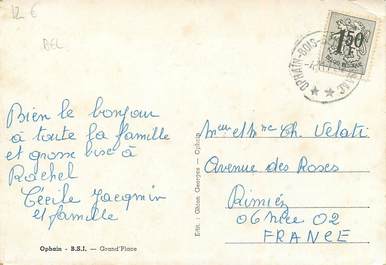 12 €
BEL
1,50
OPHAIN-BOIS-
Bien le bonjour
à toute la famille
et grosse bise à
Rachel
Cécile Jacqmin
et famille
Mr et Mme Ch. Velati
Avenue des Roses
Rimiez
06 Nice 02
FRANCE
Edit. : Ghion Georges — Ophain
Ophain - B.S.I. — Grand'Place